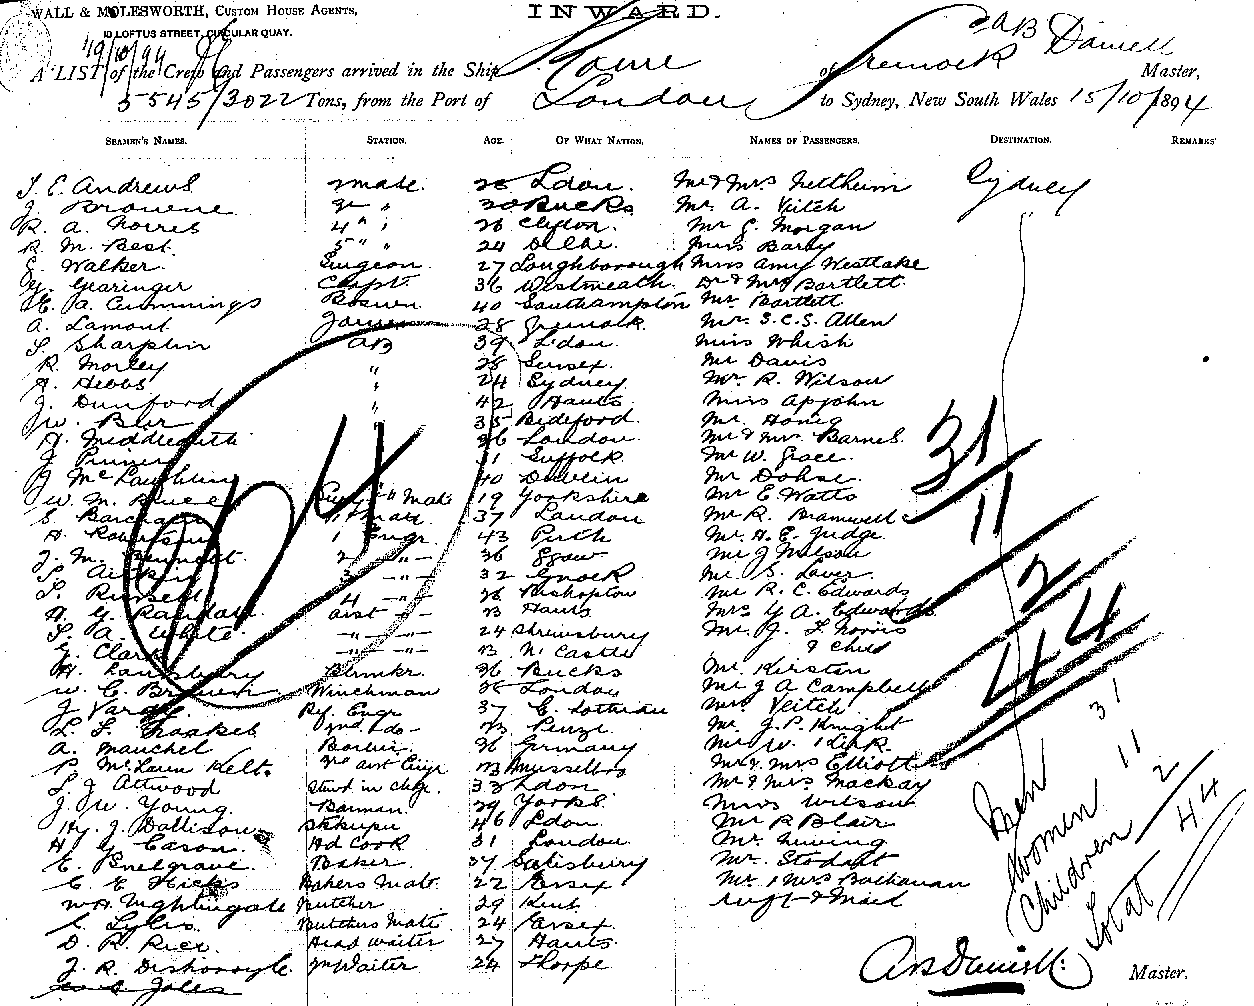 WALL & MOLESWORTH, CUSTOM HOUSE AGENTS,
INWARD.
10 LOFTUS STREET, CIRCULAR QUAY.
19/10/94
A LIST of the Crew and Passengers arrived in the Ship Rome of Greenock A B Daniell Master,
5545/3022 Tons, from the Port of London to Sydney, New South Wales 15/10/1894
SEAMEN'S NAMES. STATION. AGE. OF WHAT NATION. NAMES OF PASSENGERS. DESTINATION. REMARKS
T. E. Andrews 2 mate. 28 Ldon. Mr & Mrs Nettheim Sydney
J. Browne 3r " 30 Bucks Mr. A. Veitch
R. A. Norris 4 " " 26 Clifton. Mr G. Morgan
R. M. Best. 5 " " 24 Delhi. Miss Barby
E. Walker. Surgeon. 27 Loughborough Miss Amy Westlake
Gearinger Carpt. 36 Westmeath. Dr & Mrs Bartlett
E. A. Cummings Boswn 40 Southampton Mr. Bartlett
A. Lamont 28 Greenock. Mr. S. C. S. Allen
S. Sharplin AB 39 Ldon. Miss Whish
R. Morley " 28 Sussex. Mr Davis
Hibbs " 24 Sydney. Mr. R. Wilson
J. Dunford " 42 Hants. Miss Apjohn
W. Blor 35 Bideford. Mr. Honig
H. Middleditch 36 London. Mr & Mrs Barnes.
J. 31 Suffolk. Mr W. Grace.
J McLaughlin 40 Dublin Mr Dohse.
W. M. Bruce Mate 19 Yorkshire Mr E Watts
S. 37 London Mr R. Bramwell
A. Robertson 1 Engr. 43 Perth Mr. H. E. Judge.
J. M. 2 " 36 Mr J Wilson
Aitken 3 " 32 Gnock Mr. S. Laver.
Russell 4 " 28 Bishopton Mr R. C. Edwards
H. G. Randall Asist " 23 Hants Mrs Y A. Edwards
S. A. White " " 24 Shrewsbury Mr. J. L. Norris
G. Clark " " 23 N. Castle & Child
H. Lansbury Blrmkr. 36 Bucks Mr. Kirsten
W. C. Brown Winchman 38 London Mr J A Campbell
J Rf. Engr 37 E. Lothian Mrs. Veitch
L. F. 2nd do 23 Penge. Mr. J. P. Knight
A. Mauchel Barber. 36 Germany Mr W. Kirk.
P. McLaren Kelt. 3rd asst Engr 23 Mussellbro Mr & Mrs Elliott
S. J. Attwood Stwd in chge. 33 Ldon Mr & Mrs Mackay
J. W. Young. Barman. 29 Yorks. Miss Wilson
Hy. J. Dallison Stkkupr 46 Ldon. Mr R Blair
H. Y. Eason. Hd Cook 31 London Mr. Twining
E. Snelgrave Baker 37 Salisbury Mr. Stodart
C. E. Hicks Bakers Mate. 22 Essex Mr. & Mrs Buchanan
W. H. Nightingale Butcher 29 Kent. Inft & Maid
Lyles. Butchers Mate 24 Essex
D. R. Rice. Head Waiter 27 Hants.
J. R. Waiter 24 Thorpe
Jales
94
31
11
2
44
Men 31
Women 11
Children 2
Total 44
A B Daniell. Master.